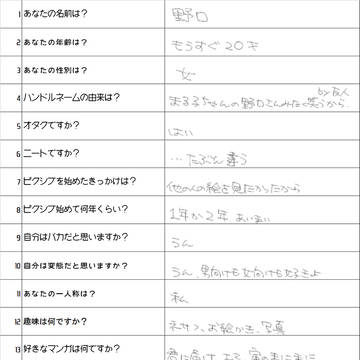 1 あなたの名前は? 野口
2 あなたの年齢は? もうすぐ20才
3 あなたの性別は? 女
by友人
4 ハンドルネームの由来は? まる子ちゃんの野口さんみたく笑うから
5 オタクですか? はい
6 ニートですか? …たぶん違う
7 ピクシブを始めたきっかけは? 他の人の絵を見たかったから
8 ピクシブ始めて何年くらい? 1年か2年 あいまい
9 自分はバカだと思いますか? うん
10 自分は変態だと思いますか? うん、男向けも女向けも
11 あなたの一人称は? 私
12 趣味は何ですか? ネサフ、お絵かき、写真
13 好きなマンガは何ですか? 君に届け